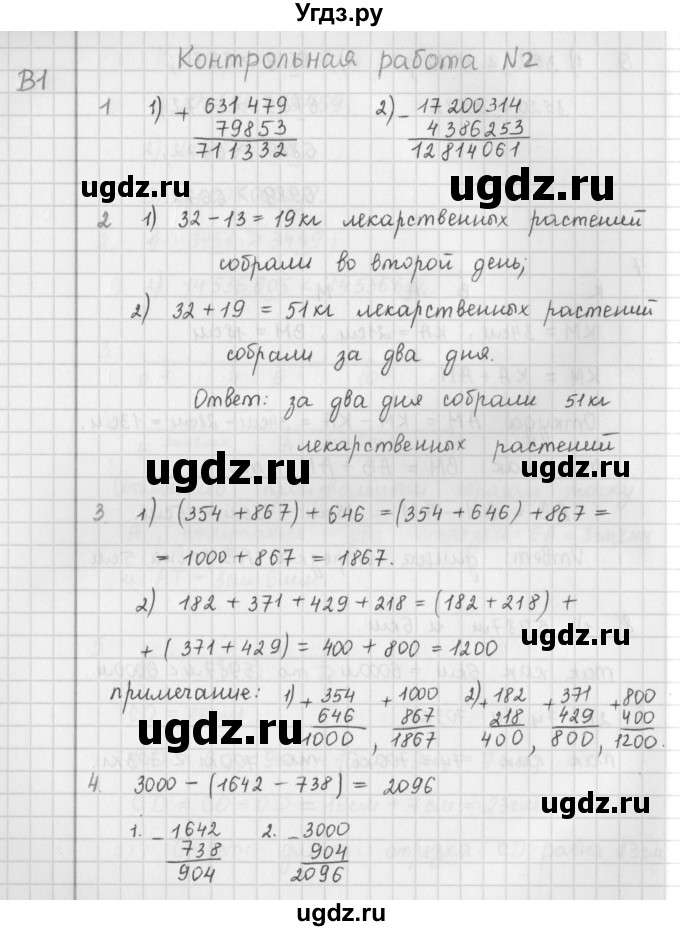 Угдз.ру
Контрольная работа N2
В1
1 1) + 631 479
79853
711332
2) - 17 200 314
4 386 253
12 814 061
ugdz.ru ugdz.ru
2 1) 32 - 13 = 19 кг лекарственных растений
собрали во второй день;
2) 32 + 19 = 51 кг лекарственных растений
собрали за два дня.
Ответ: за два дня собрали 51 кг
лекарственных растений
ugdz.ru ugdz.ru
3 1) (354 + 867) + 646 = (354 + 646) + 867 =
= 1000 + 867 = 1867.
2) 182 + 371 + 429 + 218 = (182 + 218) +
+ (371 + 429) = 400 + 800 = 1200
ugdz.ru
примечание: 1) + 354
646
1000 ,
+ 1000
867
1867
2) + 182
218
400 ,
+ 371
429
800 ,
+ 800
400
1200.
ugdz.ru ugdz.ru
4. 3000 - (1642 - 738) = 2096
1. - 1642
738
904
2. - 3000
904
2096
ugdz.ru
ugdz.ru